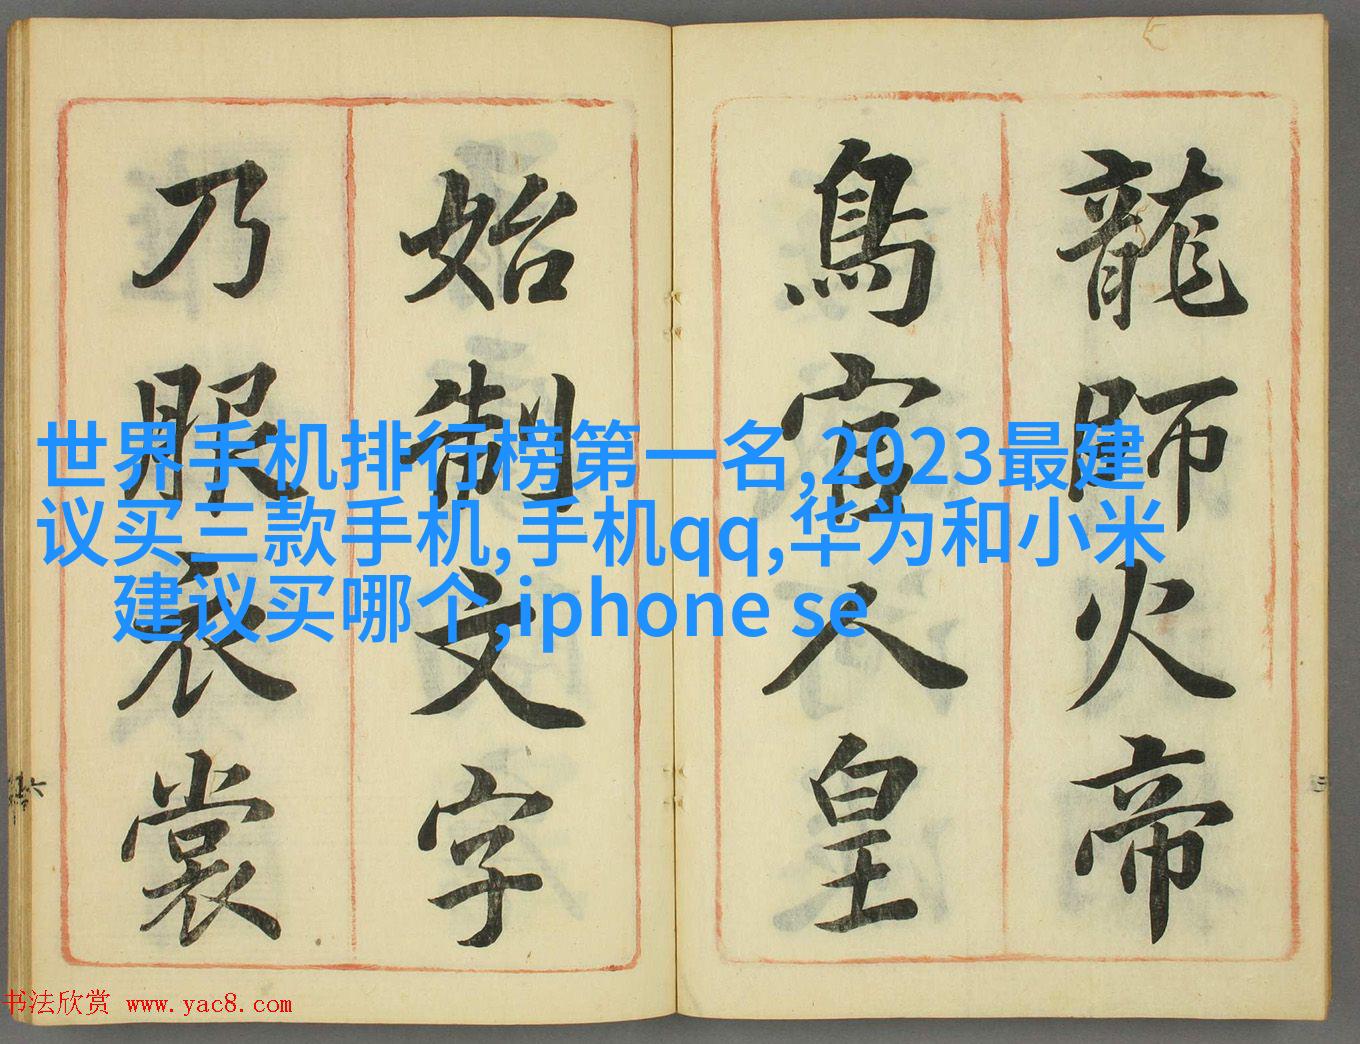 龍師火帝
鳥官人皇
始制文字
乃服衣裳
世界手机排行榜第一名,2023最建
议买三款手机,手机qq,华为和小米
建议买哪个,iphone se
书法欣赏 www.yac8.com